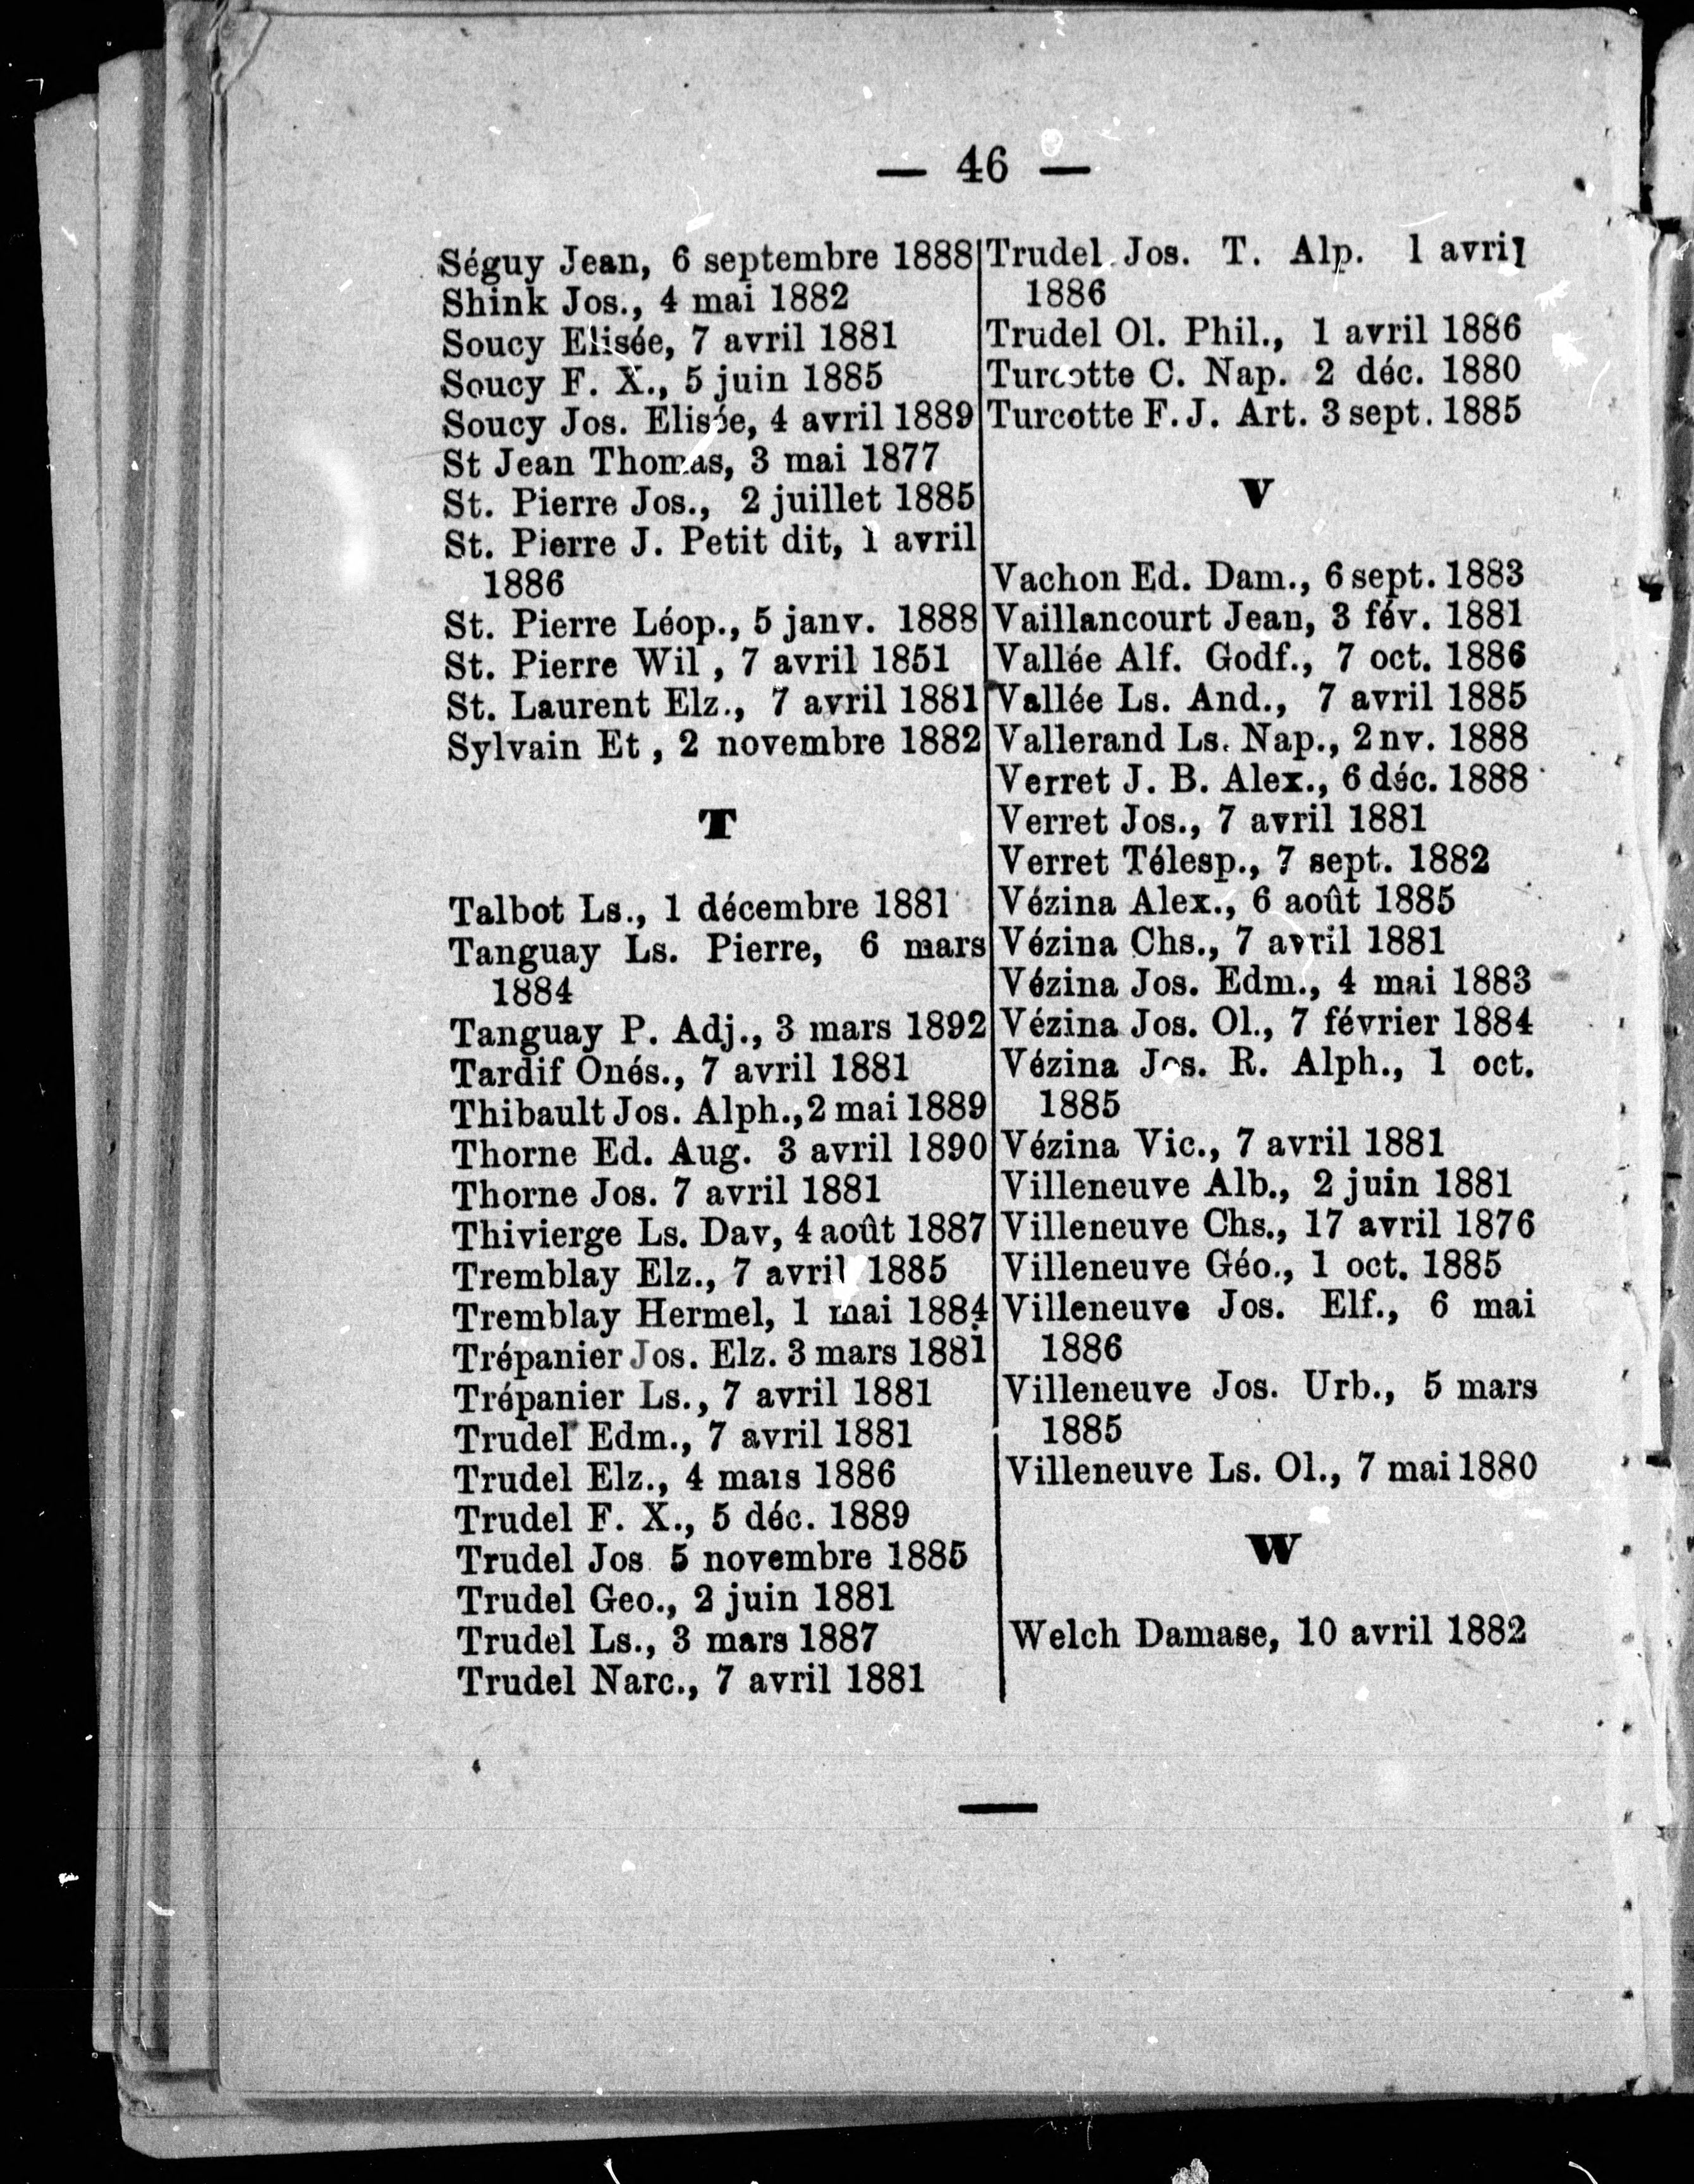 — 46 —
Séguy Jean, 6 septembre 1888
Shink Jos., 4 mai 1882
Soucy Elisée, 7 avril 1881
Soucy F. X., 5 juin 1885
Soucy Jos. Elisée, 4 avril 1889
St Jean Thomas, 3 mai 1877
St. Pierre Jos., 2 juillet 1885
St. Pierre J. Petit dit, 1 avril
1886
St. Pierre Léop., 5 janv. 1888
St. Pierre Wil , 7 avril 1851
St. Laurent Elz., 7 avril 1881
Sylvain Et , 2 novembre 1882
T
Talbot Ls., 1 décembre 1881
Tanguay Ls. Pierre, 6 mars
1884
Tanguay P. Adj., 3 mars 1892
Tardif Onés., 7 avril 1881
Thibault Jos. Alph., 2 mai 1889
Thorne Ed. Aug. 3 avril 1890
Thorne Jos. 7 avril 1881
Thivierge Ls. Dav, 4 août 1887
Tremblay Elz., 7 avril 1885
Tremblay Hermel, 1 mai 1884
Trépanier Jos. Elz. 3 mars 1881
Trépanier Ls., 7 avril 1881
Trudel Edm., 7 avril 1881
Trudel Elz., 4 mars 1886
Trudel F. X., 5 déc. 1889
Trudel Jos 5 novembre 1885
Trudel Geo., 2 juin 1881
Trudel Ls., 3 mars 1887
Trudel Narc., 7 avril 1881
Trudel Jos. T. Alp. 1 avril
1886
Trudel Ol. Phil., 1 avril 1886
Turcotte C. Nap. 2 déc. 1880
Turcotte F. J. Art. 3 sept. 1885
V
Vachon Ed. Dam., 6 sept. 1883
Vaillancourt Jean, 3 fév. 1881
Vallée Alf. Godf., 7 oct. 1886
Vallée Ls. And., 7 avril 1885
Vallerand Ls. Nap., 2 nv. 1888
Verret J. B. Alex., 6 déc. 1888
Verret Jos., 7 avril 1881
Verret Télesp., 7 sept. 1882
Vézina Alex., 6 août 1885
Vézina Chs., 7 avril 1881
Vézina Jos. Edm., 4 mai 1883
Vézina Jos. Ol., 7 février 1884
Vézina Jos. R. Alph., 1 oct.
1885
Vézina Vic., 7 avril 1881
Villeneuve Alb., 2 juin 1881
Villeneuve Chs., 17 avril 1876
Villeneuve Géo., 1 oct. 1885
Villeneuve Jos. Elf., 6 mai
1886
Villeneuve Jos. Urb., 5 mars
1885
Villeneuve Ls. Ol., 7 mai 1880
W
Welch Damase, 10 avril 1882